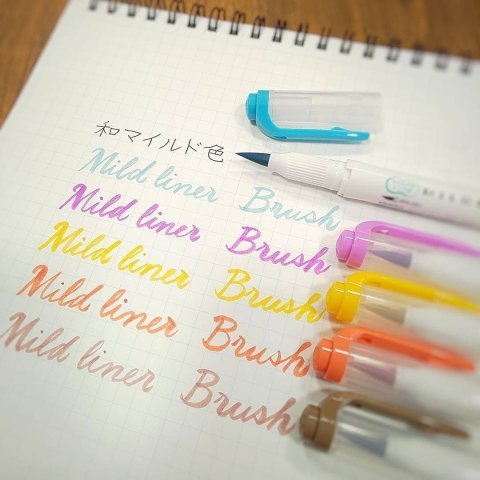 和マイルド色
Mild liner Brush
Mild liner Brush
Mild liner Brush
Mild liner Brush
Mild liner Brush